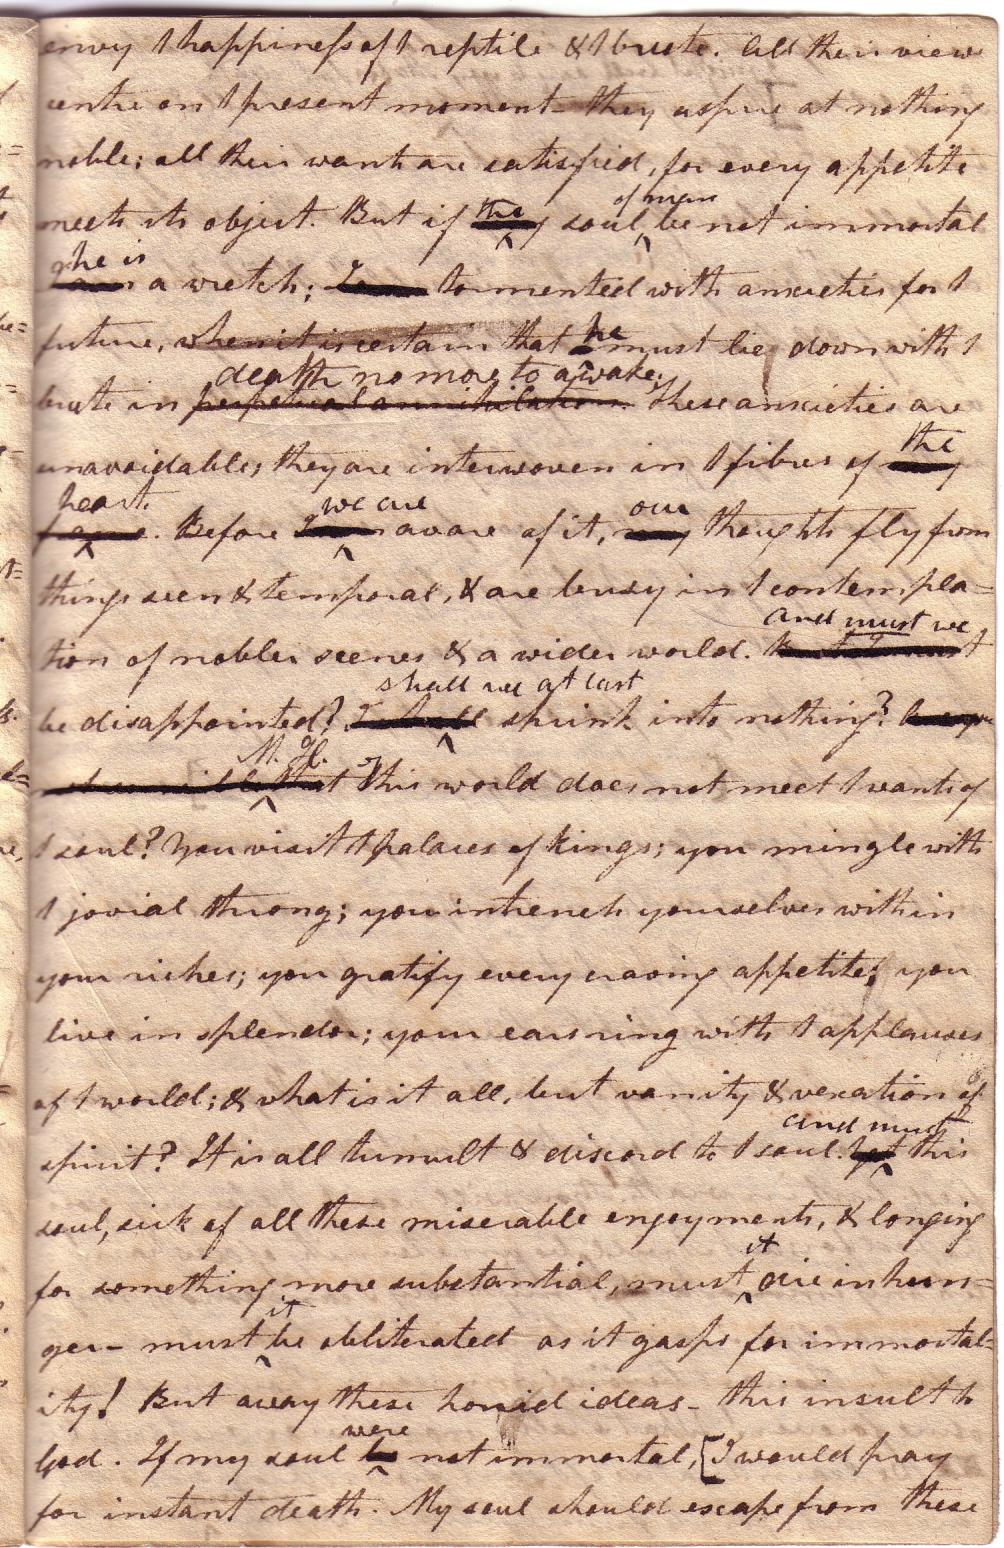 envy 1 happiness of 1 reptile & 1 brute. All their views
centre on 1 present moment - they aspire at nothing
noble; all their wants are satisfied, for every appetite
of man
meets its object. But if the soul be not immortal
he is
a wretch; tormented with anxieties for 1
he
future, when it is certain that must lie down with 1
death no more to awake.
brute in perpetual annihilation. These anxieties are
the
unavoidable; they are interwoven in 1 fibres of my
heart. we are our
frame. Before aware of it, my thoughts fly from
things seen & temporal, & are busy in 1 contempla=
and must we
tion of nobler scenes & a wider world.
shall we at last
be disappointed? I shall shrink into nothing?
M. H.
that This world does not meet 1 wants of
1 soul? You visit 1 palaces of kings; you mingle with
1 jovial throng; you intrench yourselves within
your riches; you gratify every craving appetite; you
live in splendor; your ears ring with 1 applauses
of 1 world; & what is it all, but vanity & vexation of
and must
spirit? It is all tumult & discord to 1 soul. Yet this
soul, sick of all these miserable enjoyments, & longing
it
for something more substantial, must die in hun=
it
ger - must be obliterated as it gasps for immortal=
ity! But away these horrid ideas - this insult to
were
God. If my soul be not immortal, [I would pray
for instant death. My soul should escape from these